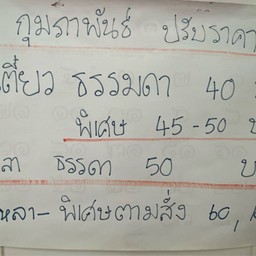 กุมภาพันธ์ ปรับราคา
เตี๋ยว ธรรมดา 40
พิเศษ 45-50 บ
ธรรดา 50 บ
พิเศษตามสั่ง 60,